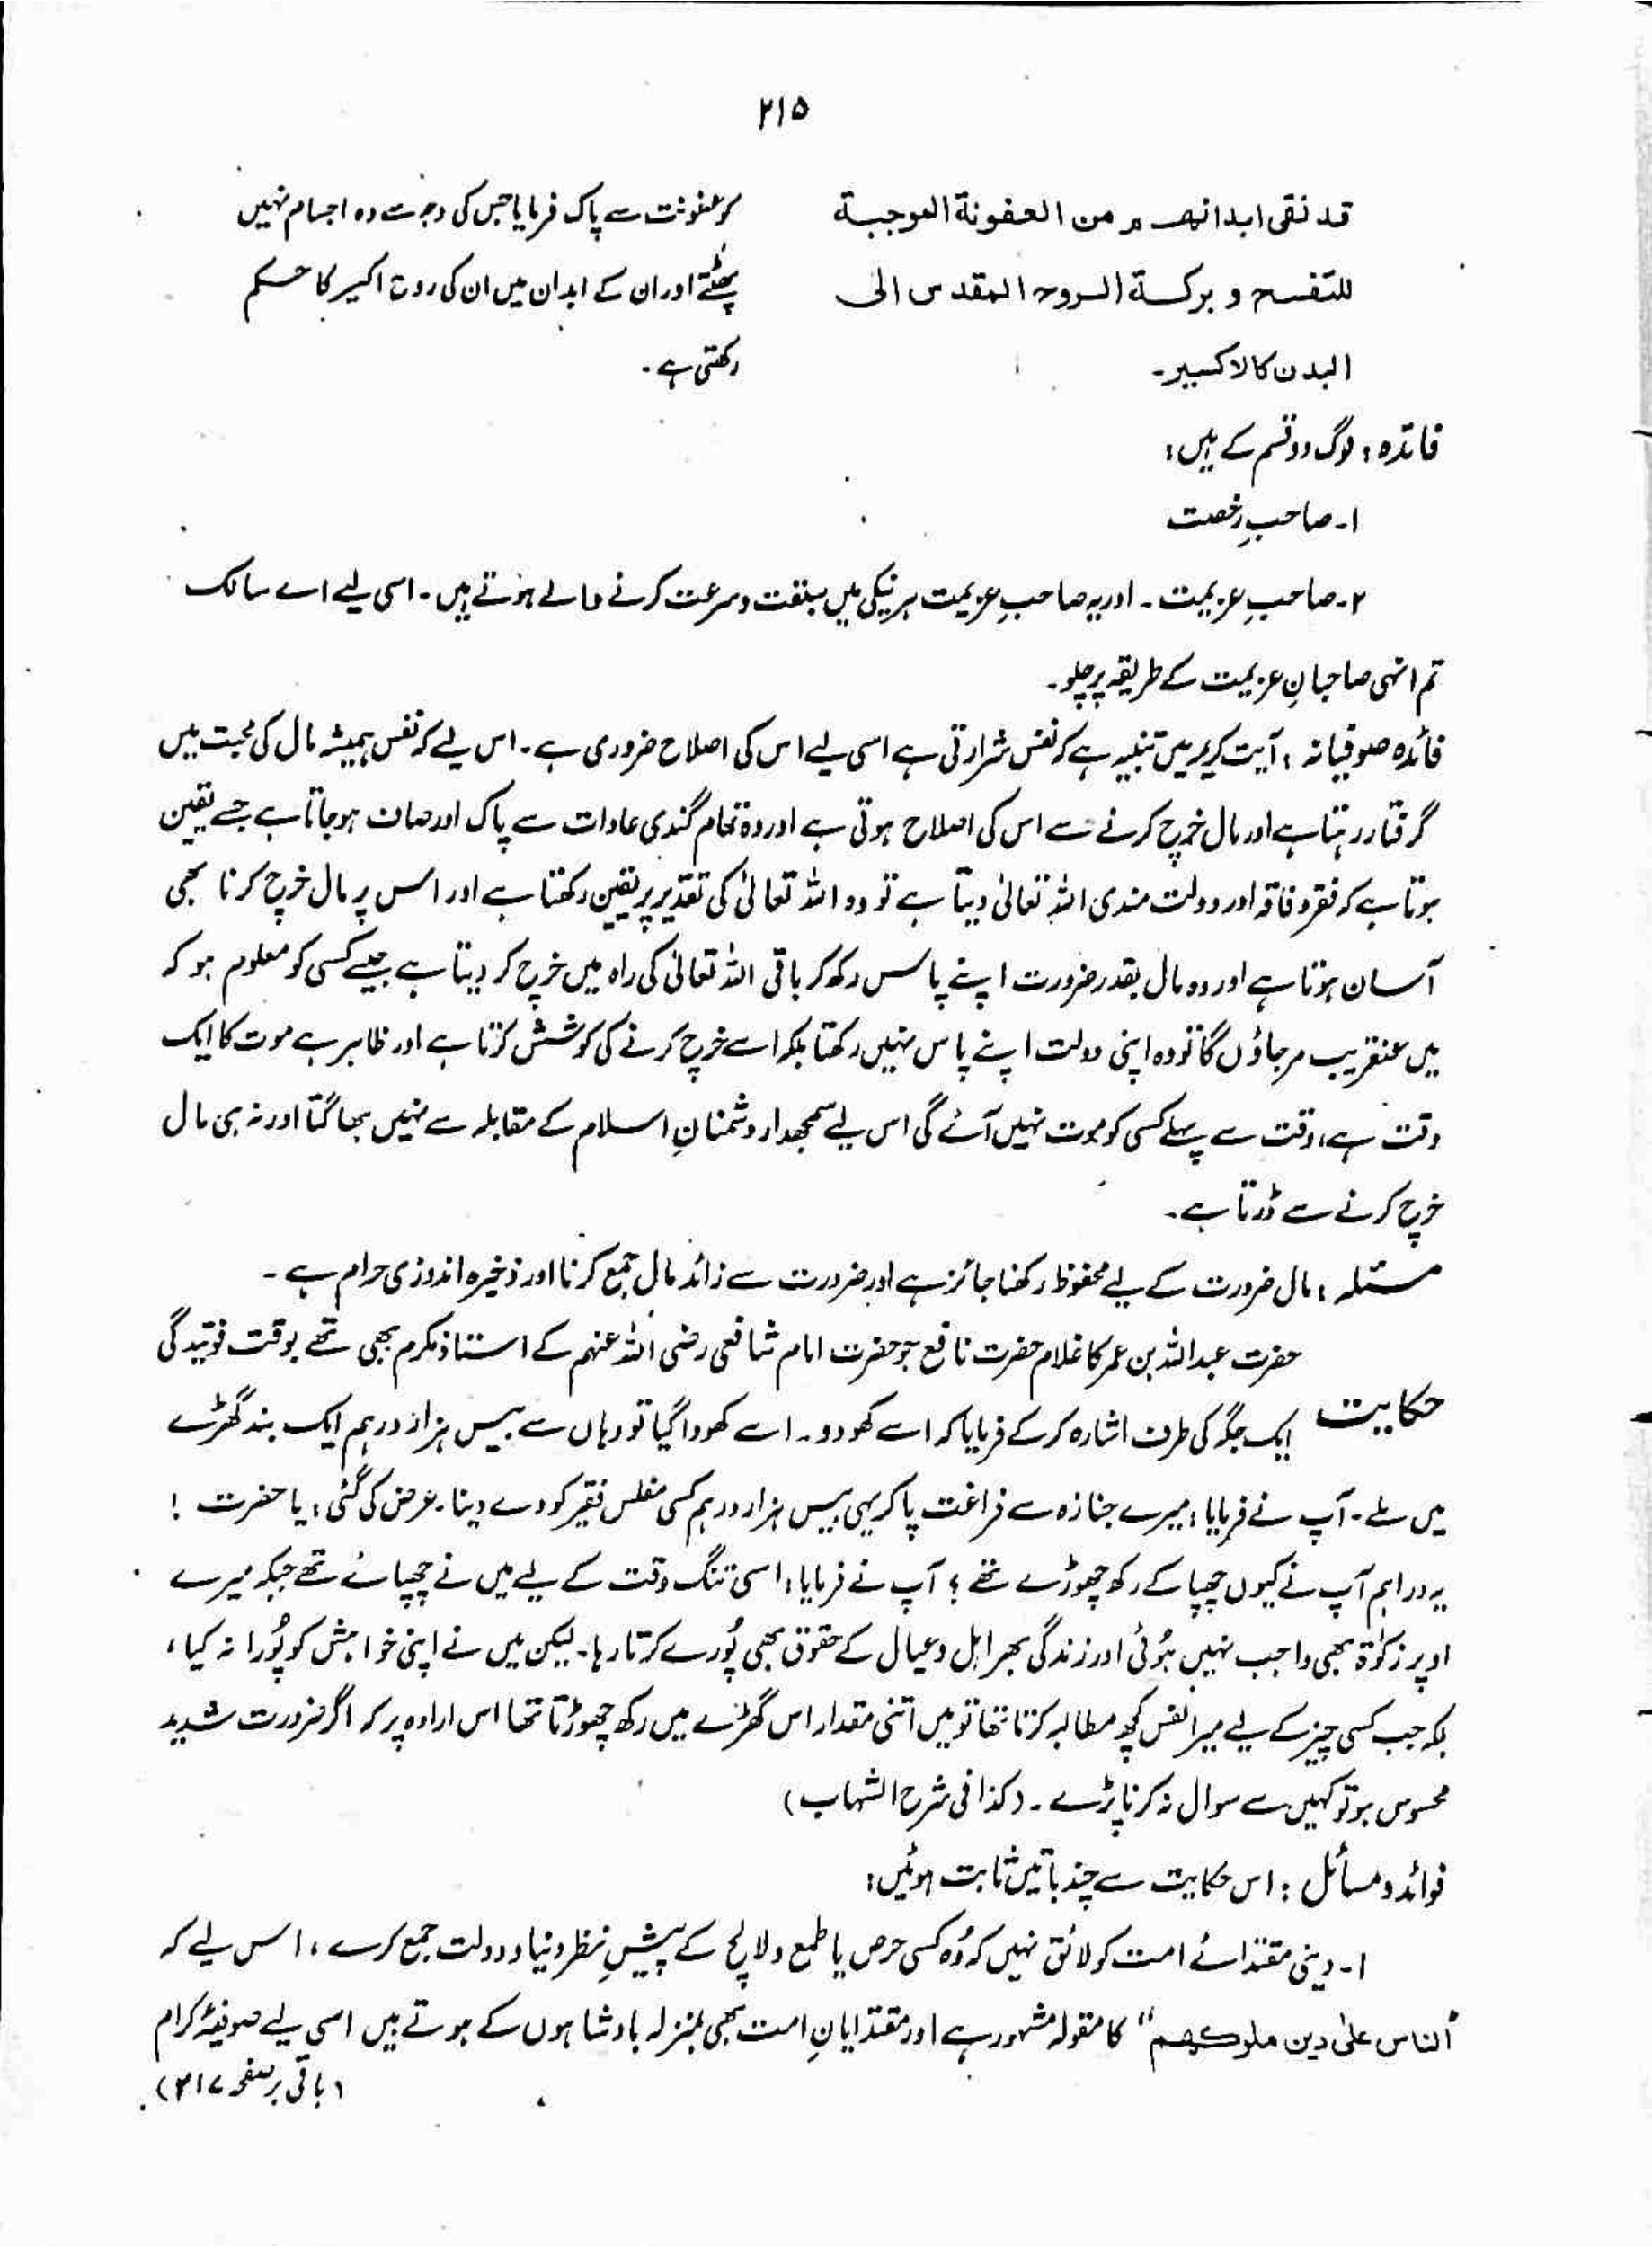 ۲۱۵
قد نقی ابدانھم من العفونة الموجبة
للتفسح و برکة الروح المقدس الی
البدن کالاکسیر۔
کو عفونت سے پاک فرمایا جس کی وجہ سے وہ اجسام نہیں
پھٹتے اور ان کے ابدان میں ان کی روح اکسیر کا حکم
رکھتی ہے۔
فائدہ : لوگ دو قسم کے ہیں :
۱۔ صاحبِ رخصت
۲۔ صاحبِ عزیمت ۔ اور یہ صاحبِ عزیمت ہر نیکی میں سبقت و سرعت کرنے والے ہوتے ہیں ۔ اسی لیے اے سالک
تم انہی صاحبانِ عزیمت کے طریقہ پر چلو۔
فائدہ صوفیانہ : آیت کریمہ میں تنبیہ ہے کہ نفس شرارتی ہے اسی لیے اس کی اصلاح ضروری ہے۔ اس لیے کہ نفس ہمیشہ مال کی محبت میں
گرفتار رہتا ہے اور مال خرچ کرنے سے اس کی اصلاح ہوتی ہے اور وہ تمام گندی عادات سے پاک اور صاف ہو جاتا ہے جسے یقین
ہوتا ہے کہ فقر و فاقہ اور دولت مندی اللہ تعالیٰ دیتا ہے تو وہ اللہ تعالیٰ کی تقدیر پر یقین رکھتا ہے اور اس پر مال خرچ کرنا بھی
آسان ہوتا ہے اور وہ مال بقدر ضرورت اپنے پاس رکھ کر باقی اللہ تعالیٰ کی راہ میں خرچ کر دیتا ہے جیسے کسی کو معلوم ہو کہ
میں عنقریب مر جاؤں گا تو وہ اپنی دولت اپنے پاس نہیں رکھتا بلکہ اسے خرچ کرنے کی کوشش کرتا ہے اور ظاہر ہے موت کا ایک
وقت ہے، وقت سے پہلے کسی کو موت نہیں آئے گی اس لیے سمجھدار دشمنانِ اسلام کے مقابلہ سے نہیں بھاگتا اور نہ ہی مال
خرچ کرنے سے ڈرتا ہے۔
مسئلہ : مال ضرورت کے لیے محفوظ رکھنا جائز ہے اور ضرورت سے زائد مال جمع کرنا اور ذخیرہ اندوزی حرام ہے ۔
حضرت عبداللہ بن عمر کا غلام حضرت نافع جو حضرت امام شافعی رضی اللہ عنہم کے استاذ مکرم بھی تھے بوقت فوتیدگی
حکایت ایک جگہ کی طرف اشارہ کر کے فرمایا کہ اسے کھودو ۔ اسے کھودا گیا تو وہاں سے بیس ہزار درہم ایک بند گھڑے
میں ملے۔ آپ نے فرمایا : میرے جنازہ سے فراغت پا کر یہی بیس ہزار درہم کسی مفلس فقیر کو دے دینا۔ عرض کی گئی : یا حضرت !
یہ دراہم آپ نے کیوں چھپا کے رکھ چھوڑے تھے ؟ آپ نے فرمایا : اسی تنگ وقت کے لیے میں نے چھپائے تھے جبکہ میرے
اوپر زکوٰۃ بھی واجب نہیں ہُوئی اور زندگی بھر اہل و عیال کے حقوق بھی پُورے کرتا رہا۔ لیکن میں نے اپنی خواہش کو پُورا نہ کیا،
بلکہ جب کسی چیز کے لیے میرا نفس کچھ مطالبہ کرتا تھا تو میں اتنی مقدار اس گھڑے میں رکھ چھوڑتا تھا اس ارادہ پر کہ اگر ضرورت شدید
محسوس ہو تو کہیں سے سوال نہ کرنا پڑے ۔ (کذا فی شرح الشہاب)
فوائد و مسائل : اس حکایت سے چند باتیں ثابت ہوئیں :
۱۔ دینی مقتدائے امت کو لائق نہیں کہ وُہ کسی حرص یا طمع و لالچ کے پیشِ نظر دنیا و دولت جمع کرے ، اس لیے کہ
"الناس علیٰ دین ملوکھم" کا مقولہ مشہور ہے اور مقتدایانِ امت بھی بمنزلہ بادشاہوں کے ہوتے ہیں اسی لیے صوفیۂ کرام
(باقی بر صفحہ ۲۱۷)